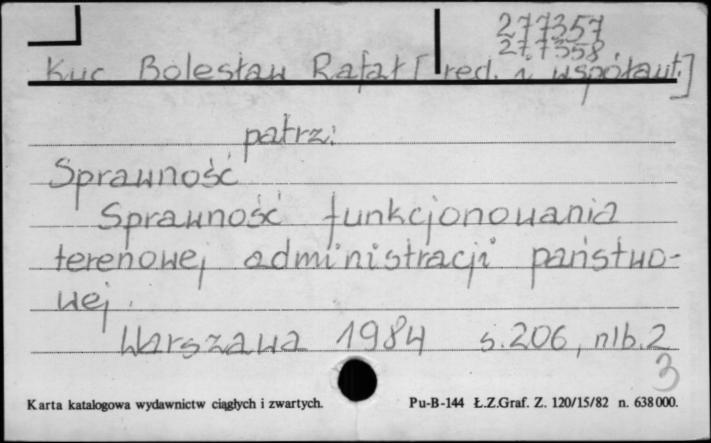 277357
277358
Kuc Bolesław Rafał [red. i współaut.]
patrz:
Sprawność
Sprawność funkcjonowania
terenowej administracji państwo-
wej.
Warszawa 1984 s. 206, nlb. 2
3
Karta katalogowa wydawnictw ciągłych i zwartych. Pu-B-144 Ł.Z.Graf. Z. 120/15/82 n. 638000.